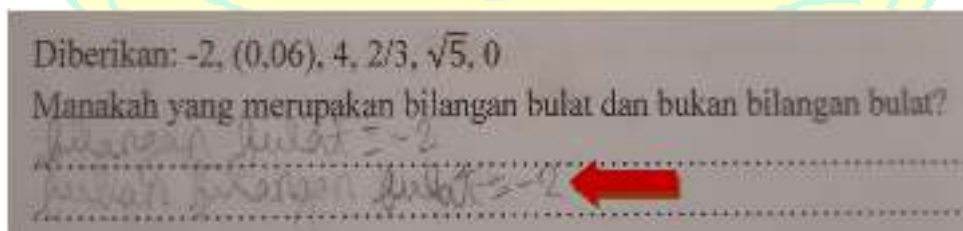 Diberikan: -2, (0,06), 4, 2/3, √5, 0
Manakah yang merupakan bilangan bulat dan bukan bilangan bulat?
bilangan bulat = -2
bukan bilangan bulat = -2